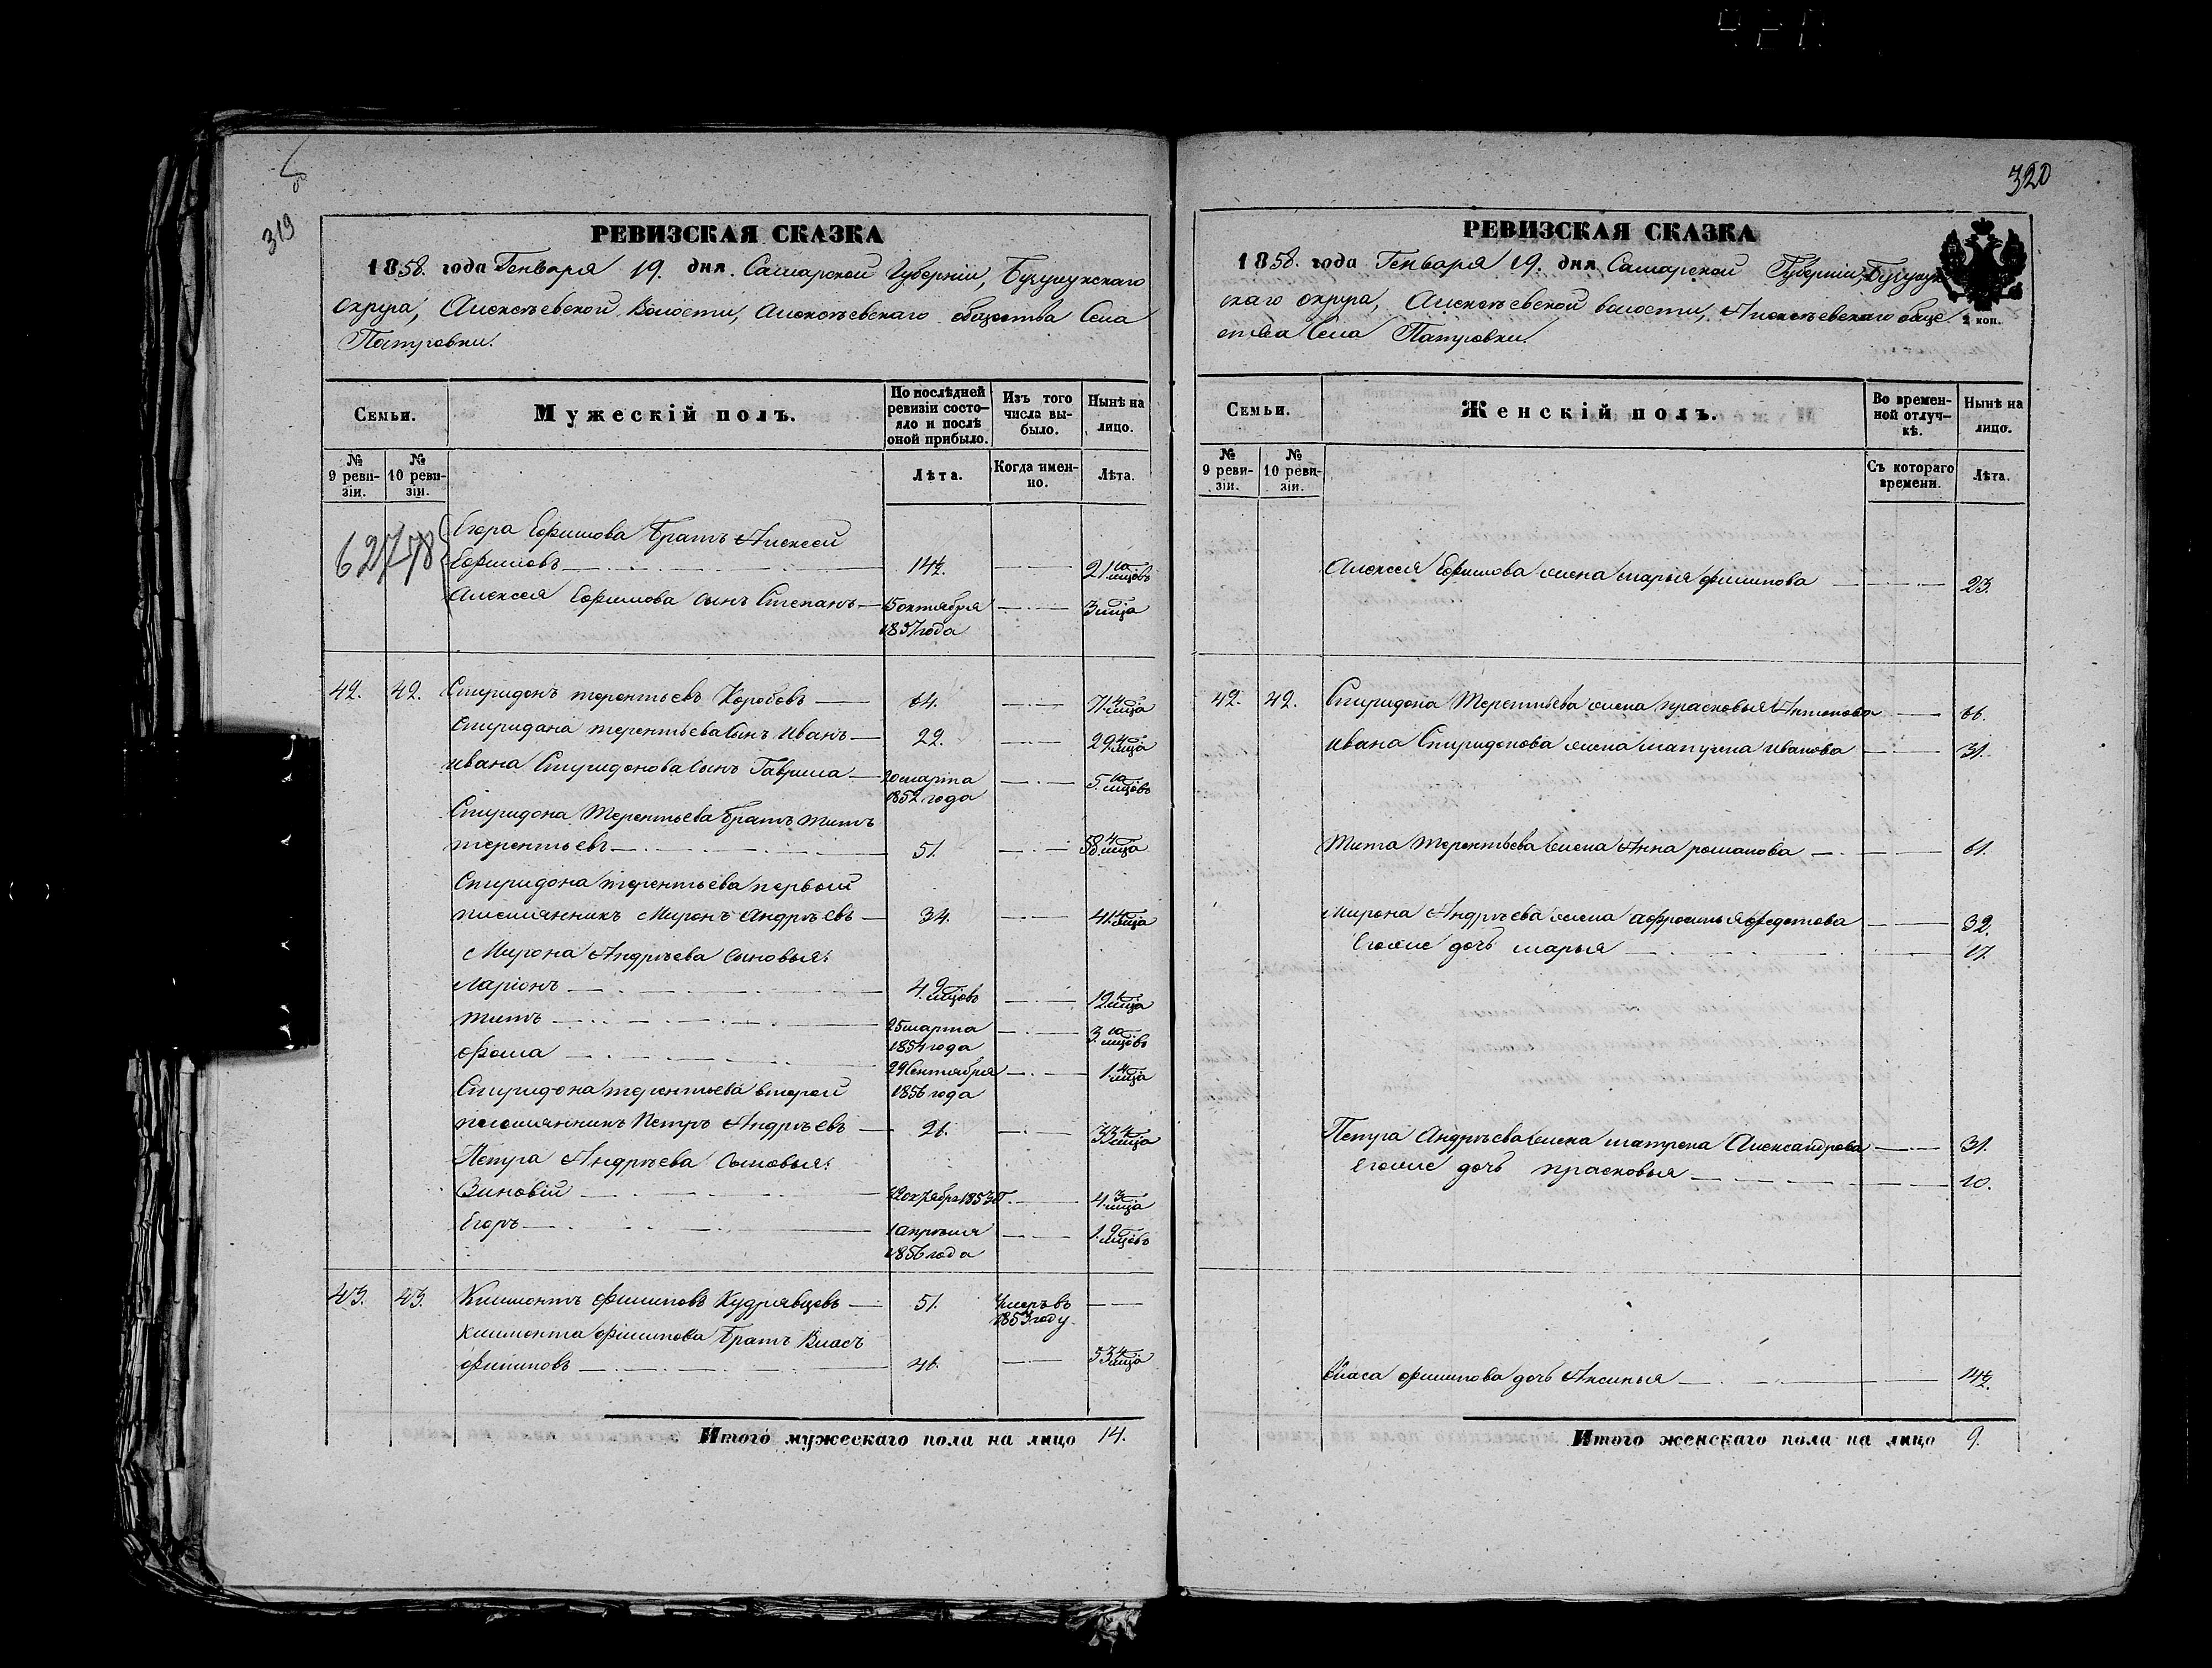 319
РЕВИЗСКАЯ СКАЗКА
1858. года Генваря 19. дня. Самарской Губерніи, Бузулукскаго
округа, Алексѣевской Волости, Алексѣевскаго общества Села
Патровки.
Семьи.
Мужескій полъ.
По послѣдней
ревизіи состо-
яло и послѣ
оной прибыло.
Изъ того
числа вы-
было.
Нынѣ на
лицо.
№
9 реви-
зіи.
№
10 реви-
зіи.
Лѣта.
Когда имен-
но.
Лѣта.
62778
Егора Ефимова братъ Алексей
Ефимовъ 14½. 21 10 мцовъ
Алексея Ефимова сынъ Степанъ 15 октября 3 мца
1857 года
42. 42. Спиридонъ терентьевъ Коробовъ 64. 71. 4 мца
Спиридона терентьева сынъ Иванъ 22. 29. 4 мца
ивана Спиридонова сынъ Гаврила 20 марта 5. 10 мцовъ
1852 года
Спиридона Терентьева братъ титъ
терентьевъ 51. 58. 4 мца
Спиридона терентьева первой
племянникъ Миронъ Андрѣевъ 34. 41. 4 мца
Мирона Андрѣева сыновья:
Ларіонъ 4. 9 мцовъ 12. 1 мца
титъ 25 марта 3. 10 мцовъ
1854 года
фома 29 Сентября 1. 4 мца
1856 года
Спиридона терентьева второй
племянникъ Петръ Андрѣевъ 26. 33. 4 мца
Петра Андрѣева сыновья:
Зиновій 22 октября 1853 г. 4. 3 мца
Егоръ 1 апрѣля 1. 9 мцовъ
1856 года
43. 43. Климонтъ филиповъ Кудрявцевъ 51. Умеръ въ
1853 году.
климонта филипова братъ Власъ
филиповъ 46. 53. 4 мца
Итого мужескаго пола на лицо 14.
320
РЕВИЗСКАЯ СКАЗКА
1858. года Генваря 19. дня Самарской Губерніи, Бузулук
скаго округа, Алексѣевской волости, Алексѣевскаго обще
ства Села Патровки.
2 коп.
Семьи.
Женскій полъ.
Во времен-
ной отлуч-
кѣ.
Нынѣ на
лицо.
№
9 реви-
зіи.
№
10 реви-
зіи.
Съ котораго
времени.
Лѣта.
Алексея Ефимова жена марья филипова 23.
42. 42. Спиридона Терентьева жена прасковья Антонова 66.
ивана Спиридонова жена матрена иванова 31.
тита терентьева жена Анна романова 61.
мирона Андрѣева жена афросинья федотова 32.
Егоже дочь марья 17.
Петра Андрѣева жена матрена Александрова 31.
егоже дочь прасковья 10.
власа филипова дочь Аксинья 14½.
Итого женскаго пола на лицо 9.